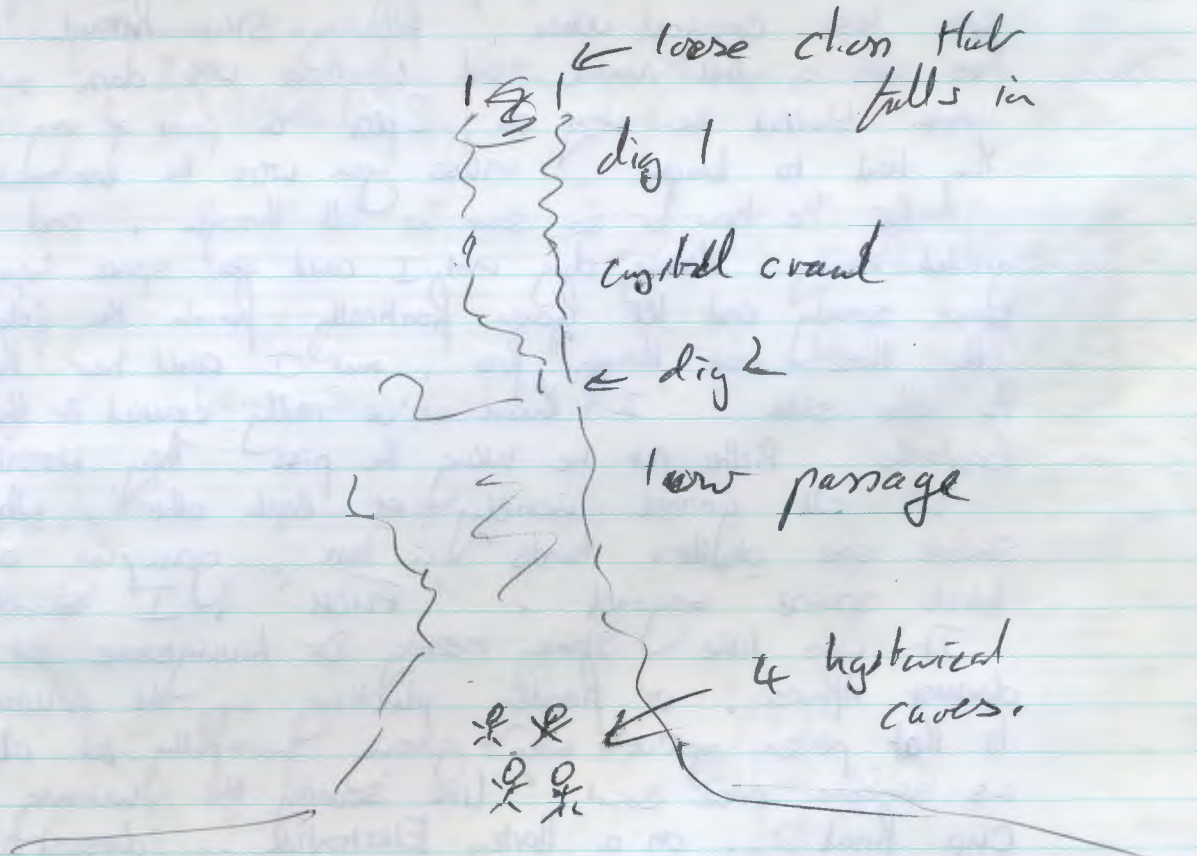 loose choss that
falls in
dig 1
crystal crawl
dig 2
low passage
4 hysterical
cavers.